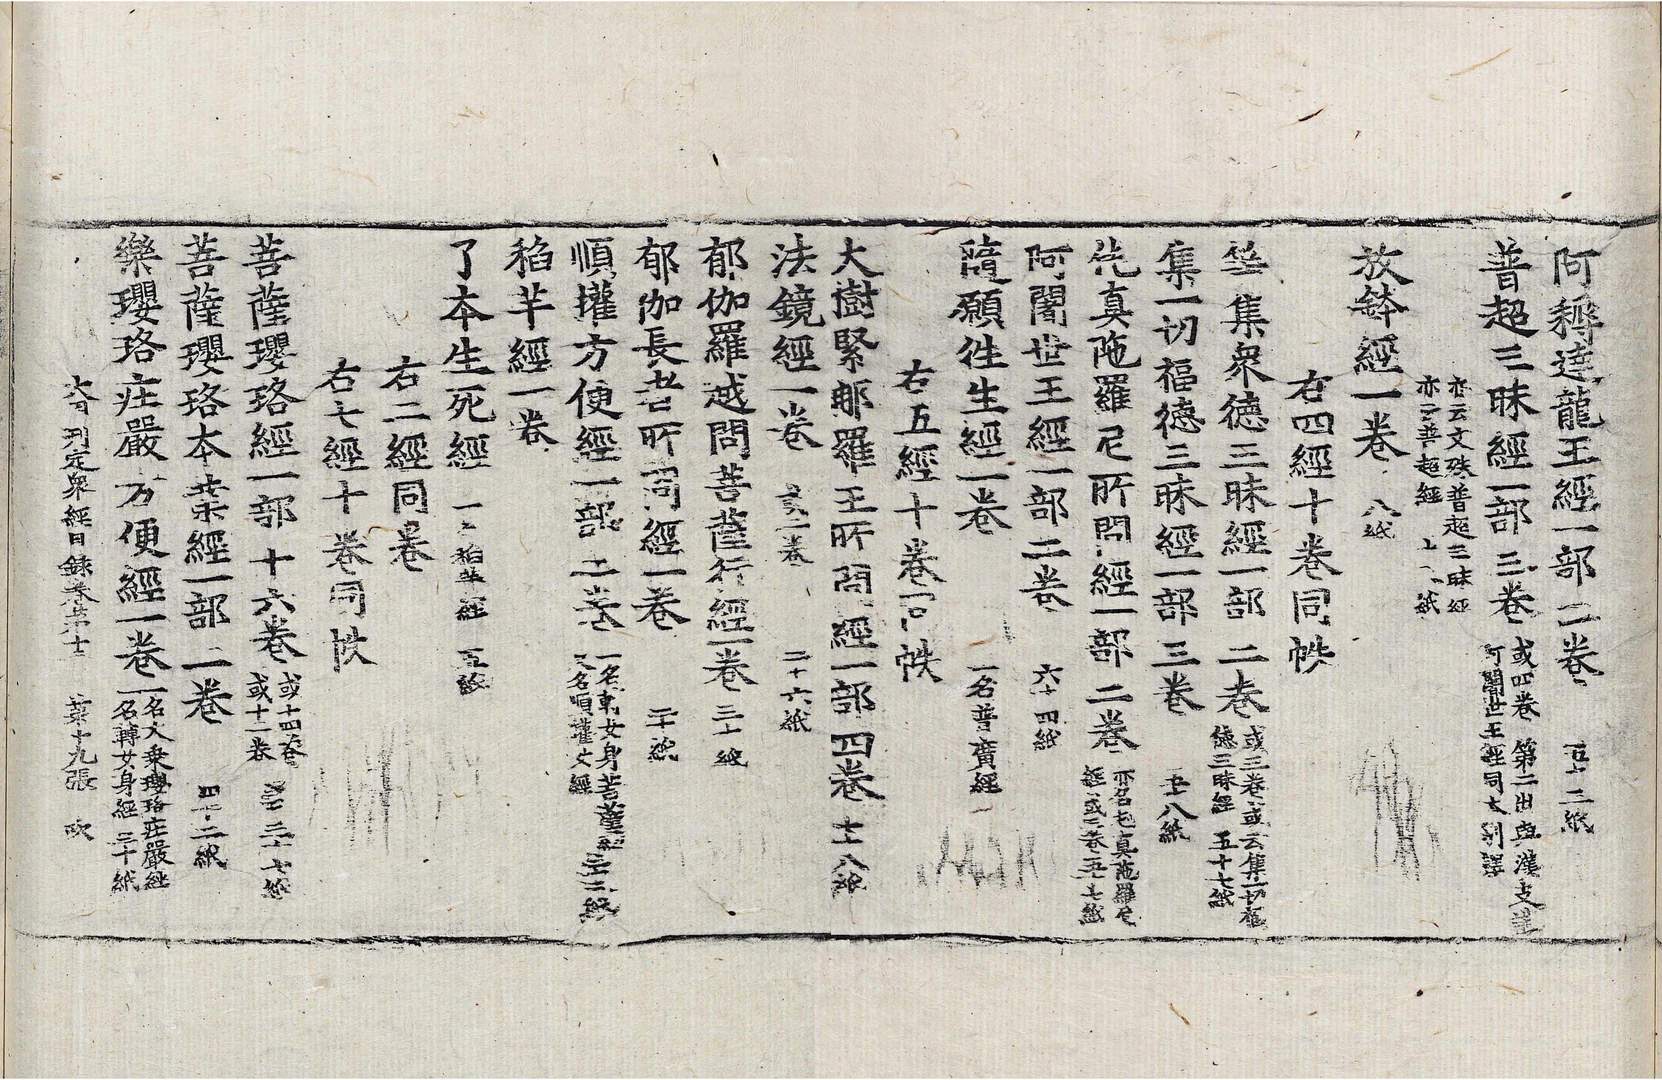 阿耨達龍王經一部二卷 五十二紙
普超三昧經一部三卷 或四卷 第二出與漢支讖
阿闍世王經同本別譯
亦云文殊普超三昧經
亦云普超經 紙
放鉢經一卷 八紙
右四經十卷同帙
等集衆德三昧經一部二卷 或三卷或云集一切福
德三昧經 五十七紙
集一切福德三昧經一部三卷 五十八紙
伅真陁羅尼所問經一部二卷 亦名屯真陁羅尼
經或三卷五十七紙
阿闍世王經一部二卷 六十四紙
隨願徃生經一卷 一名普廣經
右五經十卷同帙
大樹緊那羅王所問經一部四卷 八紙
法鏡經一卷 或二卷 二十六紙
郁伽羅越問菩薩行經一卷 三十紙
郁伽長者所問經一卷 二十紙
順權方便經一部二卷 一名轉女身菩薩經
一名順權女經 三十二紙
稻芉經一卷
了本生死經 一名稻芉經 五紙
右二經同卷
右七經十卷同帙
菩薩瓔珞經一部十六卷 或十四卷
或十二卷 三十七紙
菩薩瓔珞本業經一部二卷 四十二紙
樂瓔珞莊嚴方便經一卷 一名大乘瓔珞莊嚴經
一名轉女身經 三十紙
大周刊定衆經目錄卷第十三 葉十九張 欧